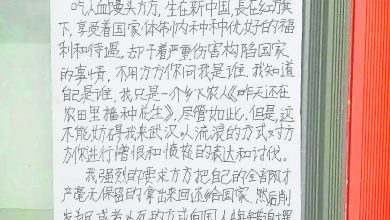 吃人血馒头方方，生在新中国，長在红旗
下，享受着国家体制内种种优好的福
利和待遇，却干着严重伤害构陷国家
的事情，不用方方你问我是谁，我知道
自己是谁，我只是一介乡下农人《昨天还在
农田里播种花生》，尽管如此，但是，这
不能妨碍我来武汉从流浪的方式对方
方你进行憎恨和愤怒的表达和讨伐。
我强烈的要求方方把自己的全部财
产毫无保留的拿出来回还给国家，然后削
发为尼或者以死的方式向国人悔